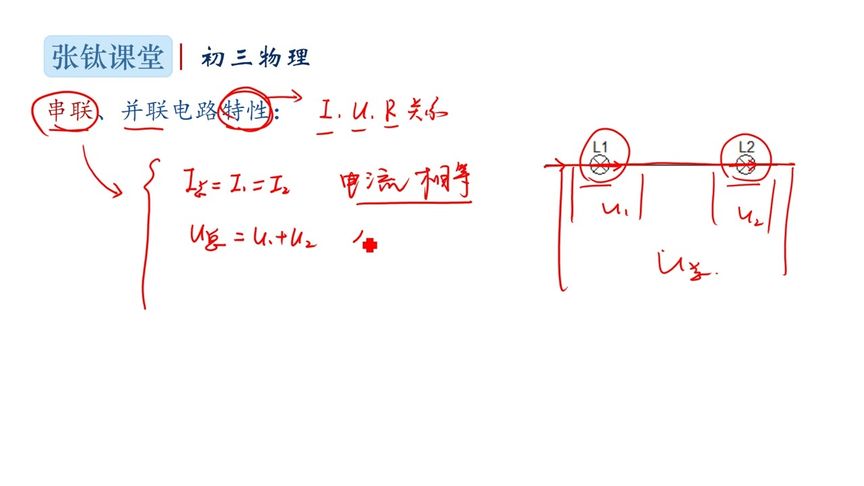 张钛课堂 | 初三物理
串联、并联电路特性： I、U、R 关系
I总=I₁=I₂ 电流相等
U总=U₁+U₂
L1 L2
U₁ U₂
U总